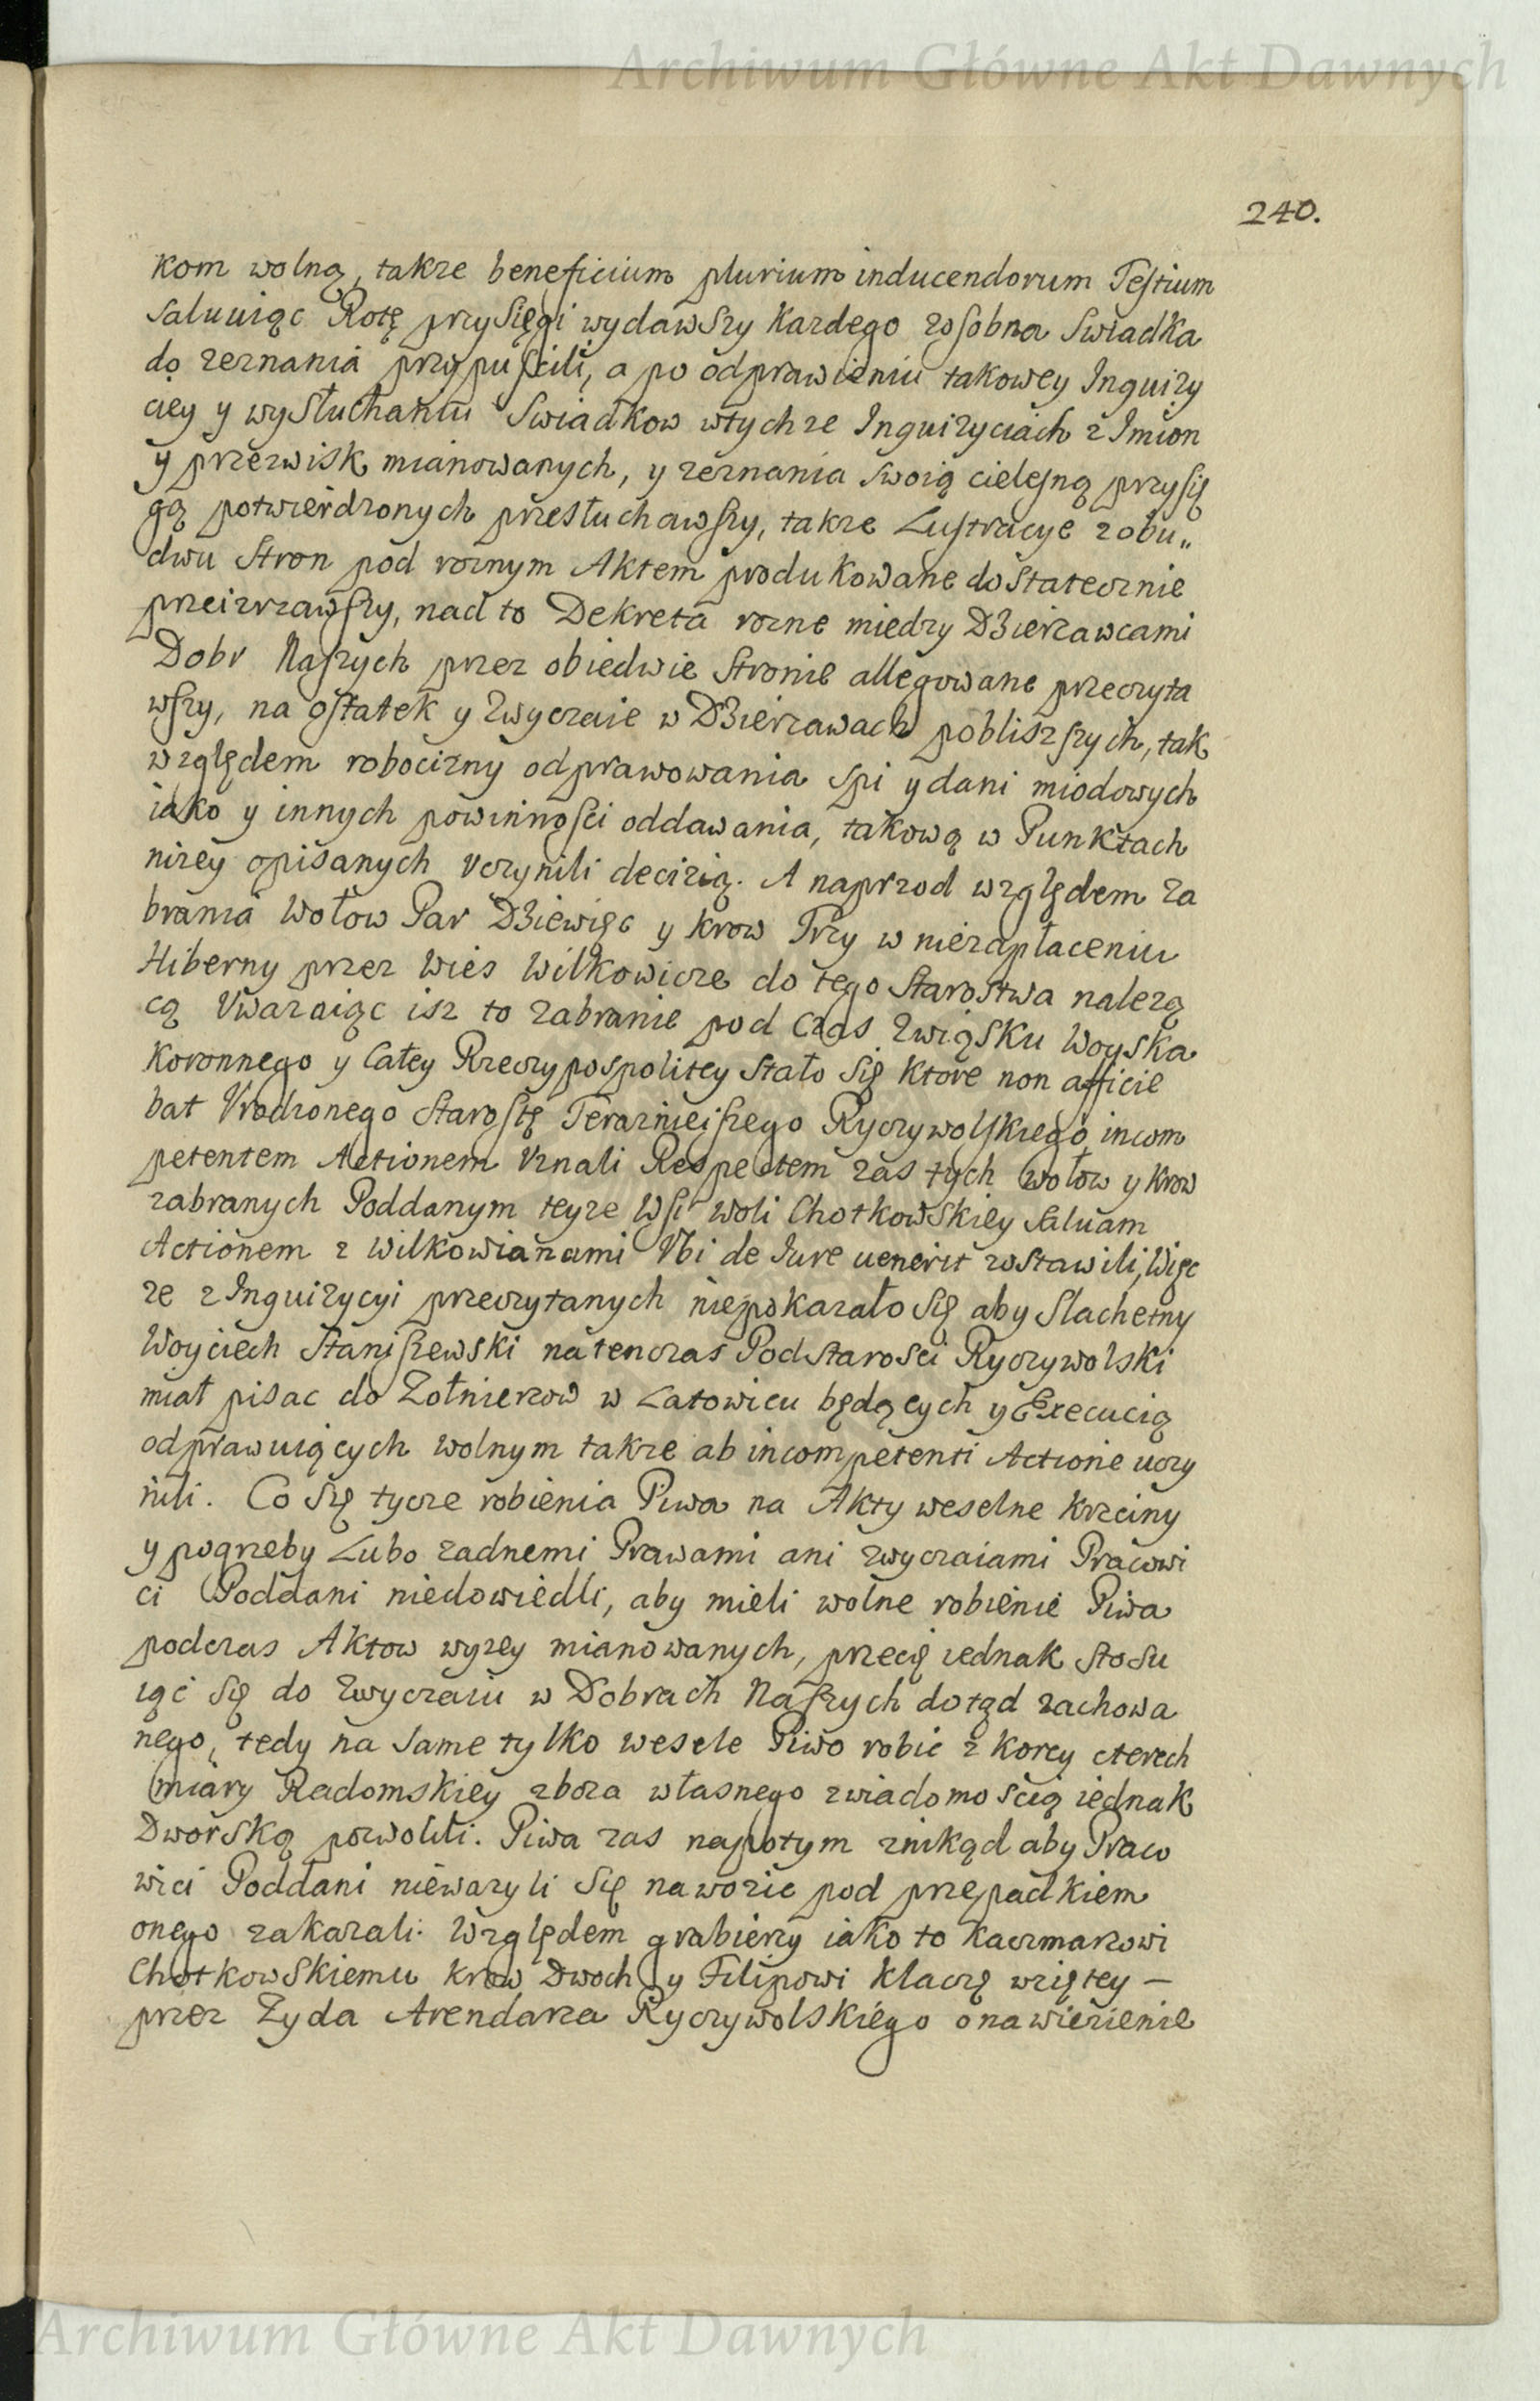 Archiwum Główne Akt Dawnych
240.
kom wolną, takze beneficium plurium inducendorum Testium
saluuiąc Rotę przysięgi wydawszy kazdego zosobna swiadka
do zeznania przypuscili, a po odprawieniu takowey Inquizy
ciey y wysłuchaniu swiadkow wtychze Inquizyciach z Imion
y przezwisk mianowanych, y zeznania swoią cielesną przysię
gą potwierdzonych przesłuchawszy, takze Lustracye zobu„
dwu stron pod roznym Aktem produkowane dostatecznie
przeizrzawszy, nad to Dekreta rozne miedzy Dzierzawcami
Dobr Naszych przez obiedwie stronie allegowane przeczyta
wszy, na ostatek y Zwyczaie w Dzierzawach poblizszych, tak
względem robocizny odprawowania spi y dani miodowych
iako y innych powinnosci oddawania, takową w Punktach
nizey opisanych vczynili decizią. A naprzod względem za
brania Wołow Par Dziewięc y krow Trzy w niezapłaceniu
Hiberny przez Wies Wilkowicze do tego Starostwa nalezą
cą Vwazaiąc isz to zabranie pod czas Związku Woyska
Koronnego y całey Rzeczypospolitey stało się ktore non afficie
bat Vrodzonego Starostę Teraznieiszego Ryczywolskiego incom
petentem Actionem Vznali Respectem zas tych wołow y krow
zabranych Poddanym teyze Wsi Woli Chotkowskiey saluam
Actionem z Wilkowianami Vbi de Iure uenerit zostawili, Więc
ze z Inquizycyi przeczytanych niepokazało się aby Slachetny
Woyciech Staniszewski natenczas Podstarosci Ryczywolski
miał pisac do Zołnierzow w Latowicu będących y Execucią
odprawuiących wolnym takze ab incompetenti Actione uczy
nili. Co się tycze robienia Piwa na Akty weselne krzciny
y pogrzeby Lubo zadnemi Prawami ani zwyczaiami Pracowi
ci Poddani niedowiedli, aby mieli wolne robienie Piwa
podczas Aktow wyzey mianowanych, przecię iednak stosu
iąc się do Zwyczaiu w Dobrach Naszych dotąd zachowa
nego, tedy na same tylko wesele Piwo robic z korcy cterech
miary Radomskiey zboza własnego zwiadomoscią iednak
Dworską pozwolili. Piwa zas napotym znikąd aby Praco
wici Poddani niewazyli się nawozic pod przepadkiem
onego zakazali. Względem grabiezy iako to kaczmarzowi
Chotkowskiemu krow Dwoch y Filipowi klaczę wziętey —
przez Zyda Arendarza Ryczywolskiego o nawiezienie
Archiwum Główne Akt Dawnych